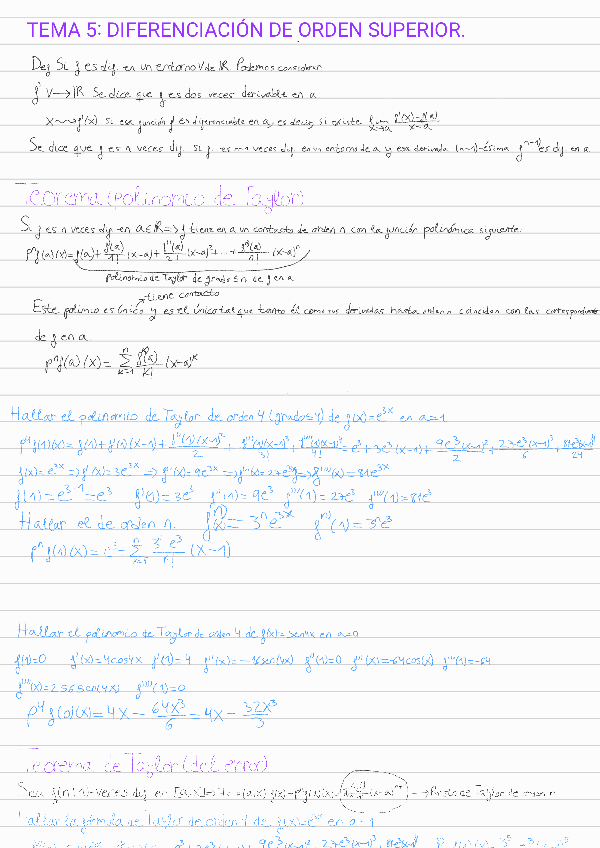 TEMA 5: DIFERENCIACIÓN DE ORDEN SUPERIOR.
Def Si f es dif. en un entorno V de ℝ Podemos considerar
f' V→ℝ Se dice que f es dos veces derivable en a
x⇝f'(x) si esa función f' es diferenciable en a, es decir, si existe lim x→a f'(x)-f'(a)/x-a
Se dice que f es n veces dif. si f es n-1 veces dif. en un entorno de a y esa derivada (n-1)-ésima f^(n-1) es dif. en a.
Teorema (polinomio de Taylor)
Si f es n veces dif en a∈ℝ => f tiene en a un contacto de orden n con la función polinómica siguiente:
Pⁿf(a)(x)=f(a)+f'(a)/1!(x-a)+f''(a)/2!(x-a)²+...+fⁿ(a)/n!(x-a)ⁿ
Polinomio de Taylor de grado ≤ n de f en a
tiene contacto
Este polimio es único y es el único tal que tanto él como sus derivadas hasta orden n coinciden con las correspondientes
de f en a
Pⁿf(a)(x)= Σ n k=1 f^(k)(a)/k! (x-a)^k
Hallar el polinomio de Taylor de orden 4 (grado≤4) de f(x)=e^3x en a=1
P⁴f(1)(x)=f(1)+f'(1)(x-1)+f''(1)(x-1)²/2+f'''(1)(x-1)³/3!+f''''(1)(x-1)⁴/4!=e³+3e³(x-1)+9e³(x-1)²/2+27e³(x-1)³/6+81e³(x-1)⁴/24
f(x)=e^3x => f'(x)=3e^3x => f''(x)=9e^3x => f'''(x)=27e^3x => f''''(x)=81e^3x
f(1)=e^3·1=e³ f'(1)=3e³ f''(1)=9e³ f'''(1)=27e³ f''''(1)=81e³
Hallar el de orden n. f^(n)(x)=3ⁿe^3x f^(n)(1)=3ⁿe³
Hallar el polinomio de Taylor de orden 4 de f(x)=sen4x en a=0
f(1)=0 f'(x)=4cos4x f'(1)=4 f''(x)=-16sen(4x) f''(1)=0 f'''(x)=-64cos(x) f'''(1)=-64
f''''(x)=256sen(4x) f''''(1)=0
P⁴f(0)(x)=4x-64x³/6=4x-32x³/3
Teorema de Taylor (del error)
→ Resto de Taylor de orden n
Hallar la fórmula de Taylor de orden 4 de en a=1